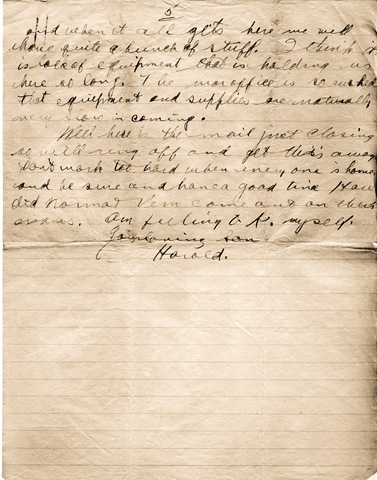 5
and when it all gets here we will
have quite a bunch of stuff. I think it
is lack of equipment that is holding us
here so long. The war office is so rushed
that equipment and supplies are naturally
very slow in coming.
Well here is the mail just closing
so will ring off and get this away
Dont work too hard when every one is home
and be sure and have a good time How
did Norma & Vern come out on their
exams. Am feeling O.K. myself.
Your loving son
Harold.